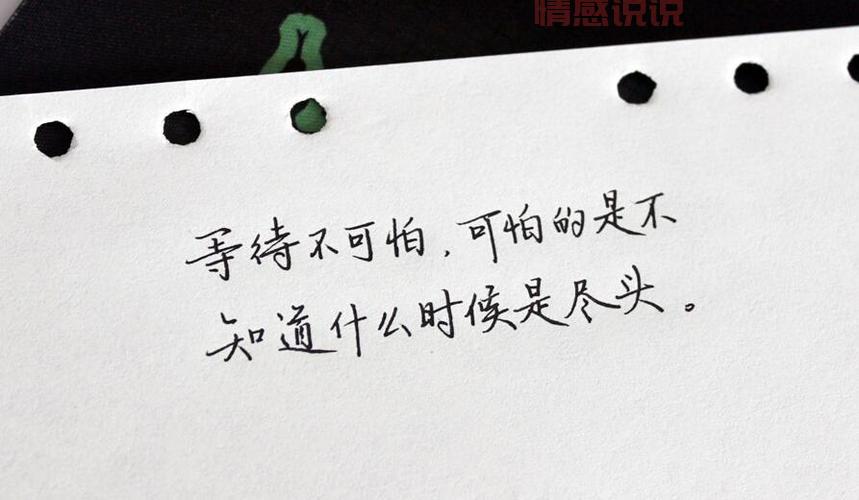 情感说说
等待不可怕，可怕的是不
知道什么时候是尽头。